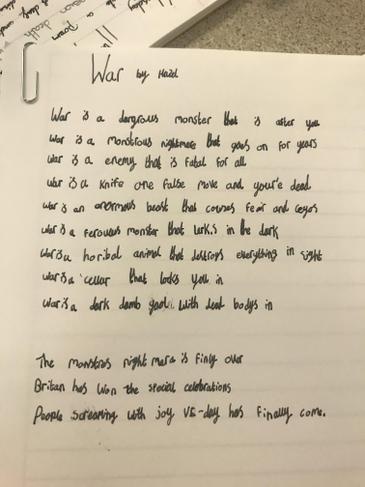 War by Hazel
War is a dangrous monster that is after you
War is a monstrous nightmare that goes on for years
War is a enemy that is fatal for all
War is a knife one false move and your'e dead
War is an enormous beast that couses fear and
War is a ferouus monster that lurks in the dark
War is a horibal animal that destroys everything in sight
War is a cellar that locks you in
War is a dark with dead bodys in
The monstras night mare is finly over
Britan has won the special celebrations
People screaming with joy VE-day has finally come.